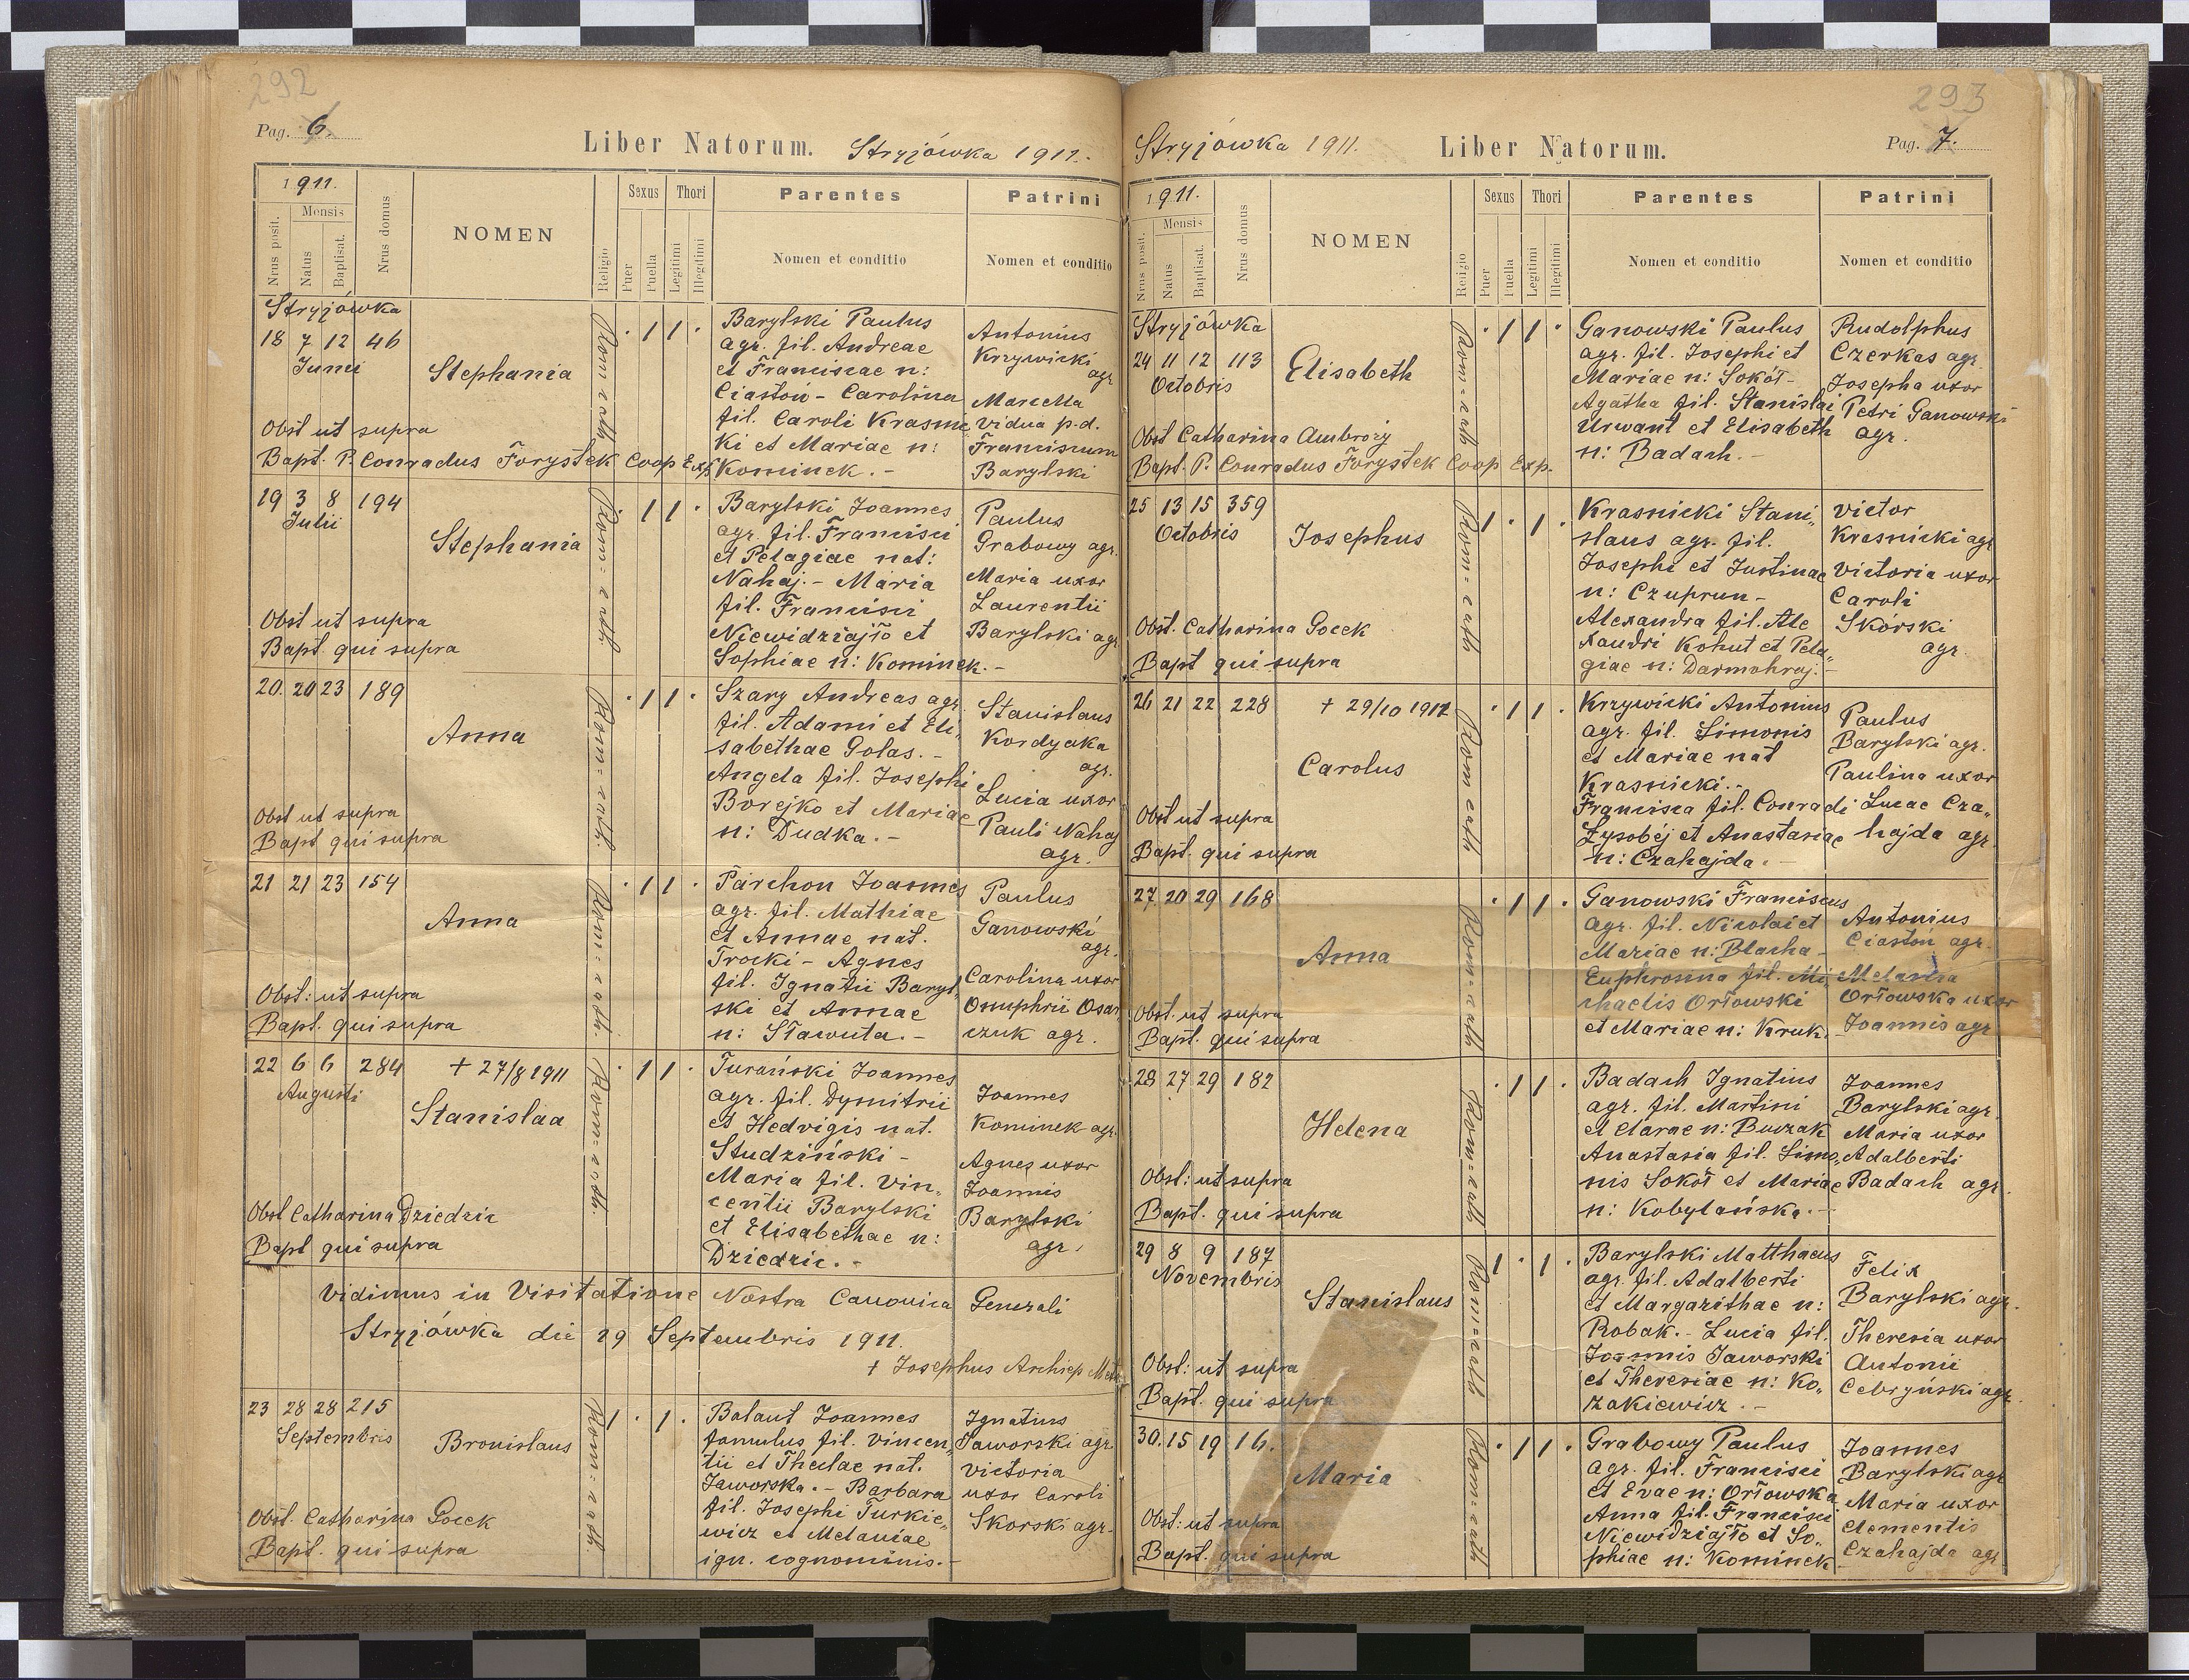 292
Pag. 6.
Liber Natorum. Stryjówka 1911.
1911.
Nrus posit.
Mensis
Natus
Baptisat.
Nrus domus
NOMEN
Religio
Sexus
Puer
Puella
Thori
Legitimi
Illegitimi
Parentes
Nomen et conditio
Patrini
Nomen et conditio
Stryjówka
18 7 12 46
Junii
Stephania
Rom=cath.
· 1 1 ·
Obst ut supra
Bapt. P. Conradus Forystek Coop Exp.
Barylski Paulus
agr. fil. Andreae
et Franciscae n:
Ciastoń - Carolina
fil. Caroli Krasnic
ki et Mariae n:
Kominek. -
Antonius
Krzywicki
agr
Marcella
vidua p.d.
Franciscum
Barylski
19 3 8 194
Julii
Stephania
Rom=cath.
1 1 ·
Obst ut supra
Bapt. qui supra
Barylski Joannes
agr. fil. Francisci
et Pelagiae nat:
Nahaj. - Maria
fil. Francisci
Niewidziajło et
Sophiae n: Kominek. -
Paulus
Grabowy agr.
Maria uxor
Laurentii
Barylski agr
20. 20 23 189
Anna
Rom=cath.
· 1 1 ·
Obst ut supra
Bapt qui supra
Szary Andreas agr
fil. Adami et Eli„
sabethae Golas. -
Angela fil. Josephi
Borejko et Mariae
n: Dudka. -
Stanislaus
Kordyaka
agr.
Lucia uxor
Pauli Nahaj
agr.
21 21 23 154
Anna
Rom=cath.
· 1 1 ·
Obst: ut supra
Bapt. qui supra
Parchon Joannes
agr. fil. Mathiae
et Annae nat.
Trocki - Agnes
fil. Ignatii Baryl„
ski et Annae
n: Sławuta. -
Paulus
Ganowski
agr.
Carolina uxor
Onuphrii Osad
czuk agr.
22 6 6 284 + 27/8 1911
Augusti
Stanislaa
Rom=cath.
· 1 1 ·
Obst Catharina Dziedzic
Bapt qui supra
Turański Joannes
agr. fil. Dymitrii
et Hedvigis nat.
Studziński -
Maria fil. Vin„
centii Barylski
et Elisabethae n:
Dziedzic. -
Joannes
Kominek agr.
Agnes uxor
Joannis
Barylski
agr.
Vidimus in Visitatione Nostra Canonica Generali
Stryjówka die 29 Septembris 1911.
+ Josephus Archiep Metr
23 28 28 215
Septembris
Bronislaus
Rom=cath.
1 · 1 ·
Obst. Catharina Gocek
Bapt. qui supra
Balaut Joannes
famulus fil. Vincen„
tii et Theclae nat.
Jaworska. - Barbara
fil. Josephi Turkie„
wicz et Melaniae
ign. cognominis. -
Ignatius
Jaworski agr
Victoria
uxor Caroli
Skorski agr.
293
Stryjówka 1911. Liber Natorum. Pag. 7.
1911.
Nrus posit.
Mensis
Natus
Baptisat.
Nrus domus
NOMEN
Religio
Sexus
Puer
Puella
Thori
Legitimi
Illegitimi
Parentes
Nomen et conditio
Patrini
Nomen et conditio
Stryjówka
24 11 12 113
Octobris
Elisabeth
Rom=cath
· 1 1 ·
Obst Catharina Ambroży
Bapt. P. Conradus Forystek Coop Exp.
Ganowski Paulus
agr. fil. Josephi et
Mariae n: Sokół -
Agatha fil. Stanislai
Urwant et Elisabeth
n: Badach. -
Rudolphus
Czerkas agr.
Josepha uxor
Petri Ganowski
agr.
25 13 15 359
Octobris
Josephus
Rom=cath
1 · 1 ·
Obst. Catharina Gocek
Bapt qui supra
Krasnicki Stani„
slaus agr. fil.
Josephi et Justinae
n: Czuprun -
Alexandra fil. Ale
xandri Kohut et Pela„
giae n: Darmohraj. -
Victor
Krasnicki agr
Victoria uxor
Caroli
Skórski
agr.
26 21 22 228 + 29/10 1911
Carolus
Rom cath
· 1 1 ·
Obst ut supra
Bapt. qui supra
Krzywicki Antonius
agr. fil. Simonis
et Mariae nat
Krasnicki. -
Francisca fil. Conradi
Łysobéj et Anastasiae
n: Czahajda. -
Paulus
Barylski agr.
Paulina uxor
Lucae Cza„
hajda agr.
27 20 29 168
Anna
Rom=cath
· 1 1 ·
Obst. ut supra
Bapt. qui supra
Ganowski Franciscus
agr. fil. Nicolai et
Mariae n: Blacha -
Euphrosina fil. Mi„
chaelis Orłowski
et Mariae n: Kruk.
Antonius
Ciastoń agr.
Melania
Orłowska uxor
Joannis agr
28 27 29 182
Helena
Rom=cath
· 1 1 ·
Obst: ut supra
Bapt. qui supra
Badach Ignatius
agr. fil. Martini
et Clarae n: Buczak
Anastasia fil. Simo„
nis Sokół et Mariae
n: Kobylańska. -
Joannes
Barylski agr.
Maria uxor
Adalberti
Badach agr.
29 8 9 187
Novembris
Stanislaus
Rom=cath
1 · 1 ·
Obst: ut supra
Bapt. qui supra
Barylski Matthaeus
agr. fil. Adalberti
et Margarithae n:
Robak. - Lucia fil.
Joannis Jaworski
et Theresiae n: Ko„
zakiewicz. -
Felix
Barylski agr.
Theresia uxor
Antonii
Cebryński agr.
30. 15 19 16.
Maria
Rom=cath
· 1 1 ·
Obst: ut supra
Bapt. qui supra
Grabowy Paulus
agr. fil. Francisci
et Evae n: Orłowska
Anna fil. Francisci
Niewidziajło et So„
phiae n: Kominek
Joannes
Barylski agr
Maria uxor
Clementis
Czahajda agr.